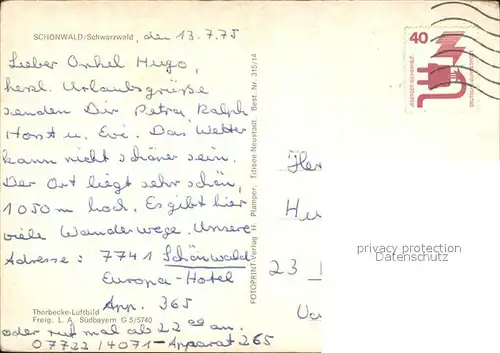 SCHÖNWALD/Schwarzwald, den 13.7.75
Lieber Onkel Hugo,
herzl. Urlaubsgrüße
senden Dir Petra, Ralph
Horst u. Evi. Das Wetter
kann nicht schöner sein.
Der Ort liegt sehr schön,
1050 m hoch. Es gibt hier
viele Wanderwege. Unsere
Adresse: 7741 Schönwald
Europa-Hotel
App. 365
Thorbecke-Luftbild
Freig. L. A. Südbayern G 5/5740
oder ruf mal ab 22 00 an.
07722/4071-Apparat 265
FOTOPRINT-Verlag H. Plamper, Titisee-Neustadt Best. Nr. 315/14
40
Her
Hu
23
physical protection
Datenschutz